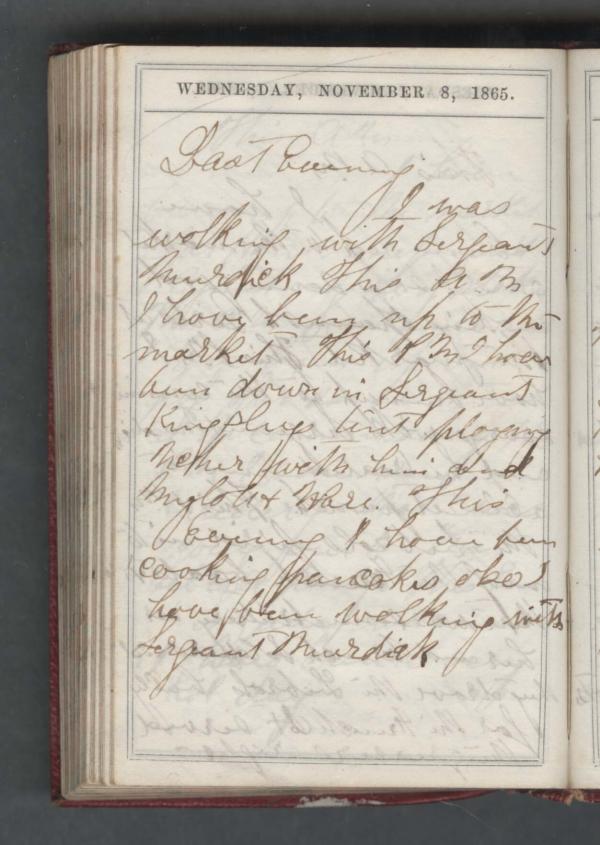 WEDNESDAY, NOVEMBER 8, 1865.
Last Evening
I was
walking with Sergeant
Murdick This A.M
I have been up to the
market This P M I have
been down in Sergeant
tent playing
with him and
Ware. This
evening I have been
cooking pancakes also I
have been walking with
Sergeant Murdick